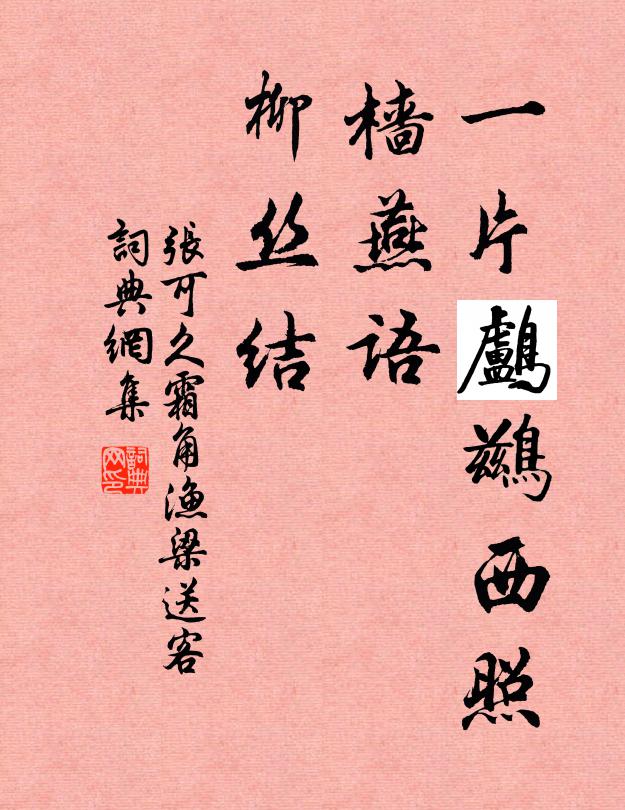 一片鸕鷀西照
檣燕語
柳丝结
張可久霜角漁梁送客
詞典網集
詞典网印